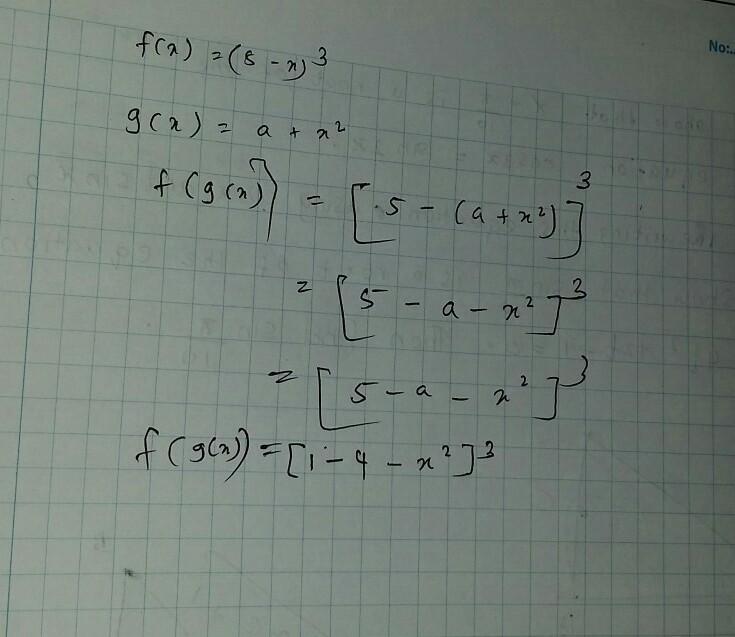 No:..
f(x) = (5 - x)^3
g(x) = a + x^2
f(g(x)) = [5 - (a + x^2)]^3
= [5 - a - x^2]^3
= [5 - a - x^2]^3
f(g(x)) = [1 - 4 - x^2]^3